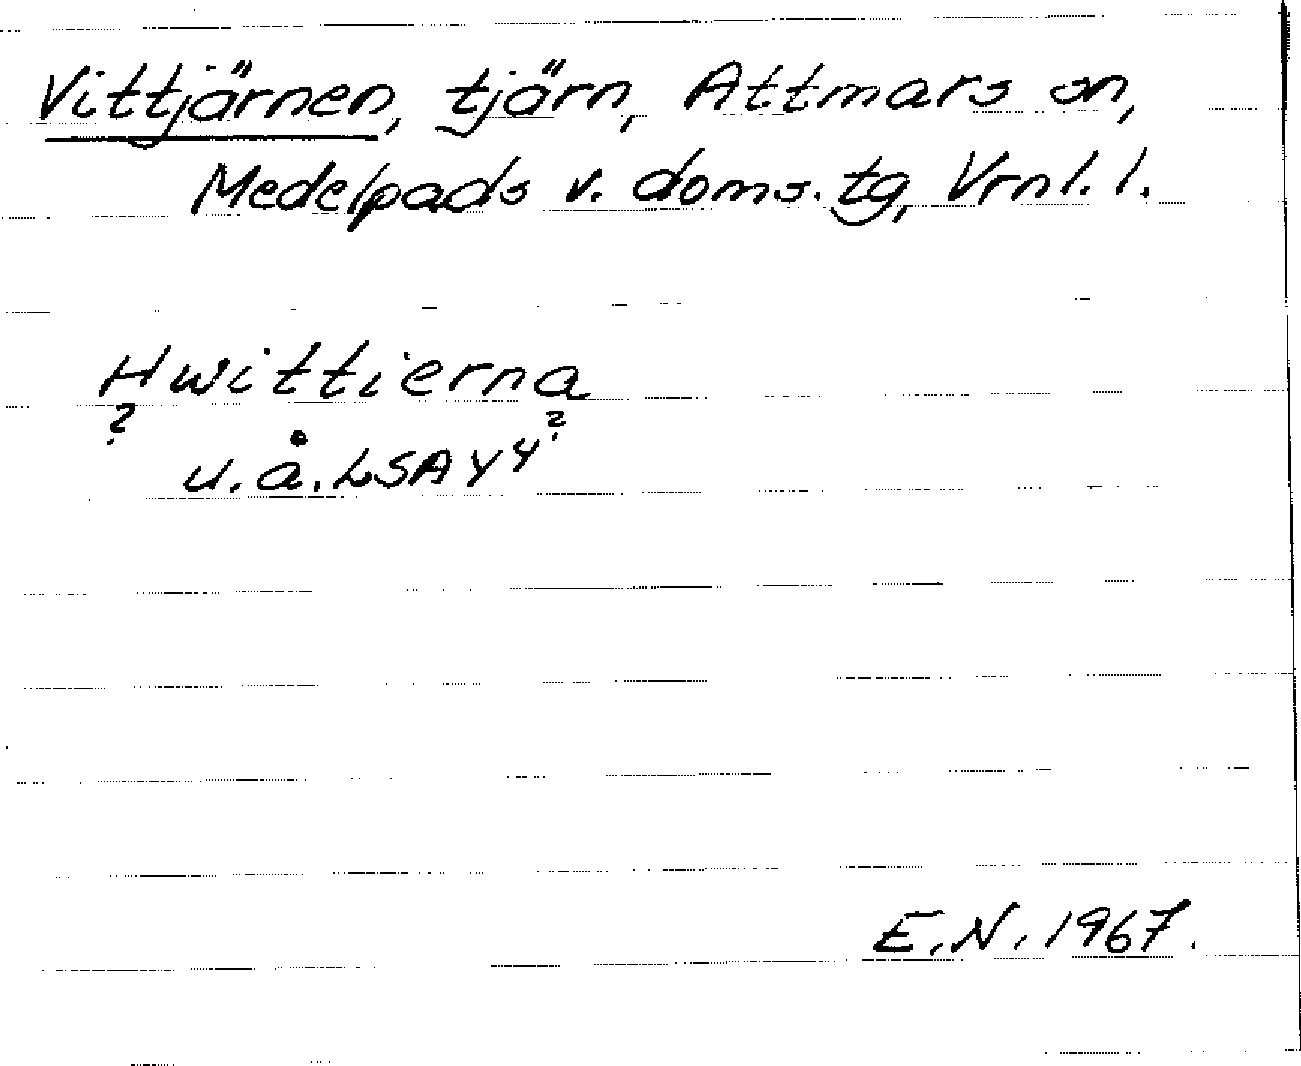 Vittjärnen, tjärn, Attmars sn,
Medelpads v. doms. tg, Vrnl. l.
Hwittierna
? ?
u. å. LSA Y 4
E. N. 1967.